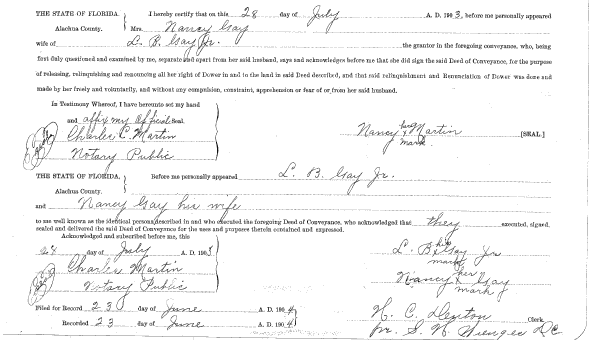 THE STATE OF FLORIDA. I hereby certify that on this 28 day of July A. D. 190 3, before me personally appeared
Alachua County. Mrs. Nancy Gay
wife of L. B. Gay Jr. the grantor in the foregoing conveyance, who, being
first duly questioned and examined by me, separate and apart from her said husband, says and acknowledges before me that she did sign the said Deed of Conveyance, for the purpose
of releasing, relinquishing and renouncing all her right of Dower in and to the land in said Deed described, and that said relinquishment and Renunciation of Dower was done and
made by her freely and voluntarily, and without any compulsion, constraint, apprehension or fear of or from her said husband.
In Testimony Whereof, I have hereunto set my hand
and affix my Official Seal.
Charles C. Martin
Notary Public
Nancy her Martin [SEAL.]
mark
THE STATE OF FLORIDA. Before me personally appeared L. B. Gay Jr.
Alachua County.
and Nancy Gay his wife
to me well known as the identical persons described in and who executed the foregoing Deed of Conveyance, who acknowledged that they executed, signed,
sealed and delivered the said Deed of Conveyance for the uses and purposes therein contained and expressed.
Acknowledged and subscribed before me, this
28 day of July A. D. 190
Charles Martin
Notary Public
L. B. his Gay Jr
mark
Nancy her Gay
mark
Filed for Record 23 day of June A. D. 190 4
Recorded 23 day of June A. D. 190 4
H. C. Denton Clerk.
pr. S. H. Wienges D C